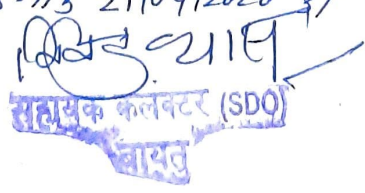 21/09/2020
व्यास
सहायक कलक्टर (SDO)
बायतु